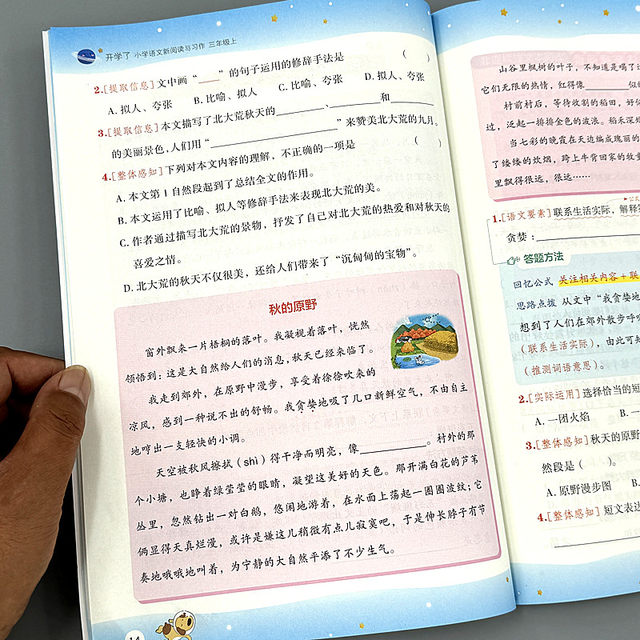 开学了 小学语文新阅读与习作 三年级上
2.[提取信息]文中画“____”的句子运用的修辞手法是 ( )
A. 拟人、夸张 B. 比喻、拟人 C. 比喻、夸张 D. 拟人、夸张
3.[提取信息]本文描写了北大荒秋天的________、________和________
的美丽景色,人们用“________________”来赞美北大荒的九月。
4.[整体感知]下列对本文内容的理解,不正确的一项是 ( )
A. 本文第1自然段起到了总结全文的作用。
B. 本文运用了比喻、拟人等修辞手法来表现北大荒的美。
C. 作者通过描写北大荒的景物,抒发了自己对北大荒的热爱和对秋天的
喜爱之情。
D. 北大荒的秋天不仅很美,还给人们带来了“沉甸甸的宝物”。
秋的原野
窗外飘来一片梧桐的落叶。我凝视着落叶,恍然
领悟到:这是大自然给人们的消息,秋天已经来临了。
我走到郊外,在原野中漫步,享受着徐徐吹来的
凉风,感到一种说不出的舒畅。我贪婪地吸了几口新鲜空气,不由自主
地哼出一支轻快的小调。
天空被秋风擦拭(shì)得干净而明亮,像________。村外的那
个小塘,也睁着绿莹莹的眼睛,凝望这美好的天色。那开满白花的芦苇
丛里,忽然钻出一对白鹅,悠闲地游着,在水面上荡起一圈圈波纹;它
俩显得天真烂漫,或许是嫌这儿稍微有点儿寂寞吧,于是伸长脖子有节
奏地哦哦地叫着,为宁静的大自然平添了不少生气。
14
山谷里枫树的叶子,不知道是喝了
它们无限的热情,红得像________似的
村前村后,等待收割的稻田,好
过,泛起一排排金色的波浪。稻禾深
当七彩的晚霞在天边编成瑰丽的
了缕缕的炊烟,跨上牛背回家的牧
里飘得很远,很远……
1.[语文要素]联系生活实际,解释
贪婪:________
答题方法
回忆公式 关注相关内容+联
思路点拨 从文中“我贪婪地
想到了人们在郊外散步呼
(联系生活实际),由此可知
(推测词语意思)。
2.[实际运用]选择恰当的短
A. 一团火焰 B. 一
3.[整体感知]秋天的原野
然段是( )。
A. 原野漫步图 B.
4.[整体感知]短文表达